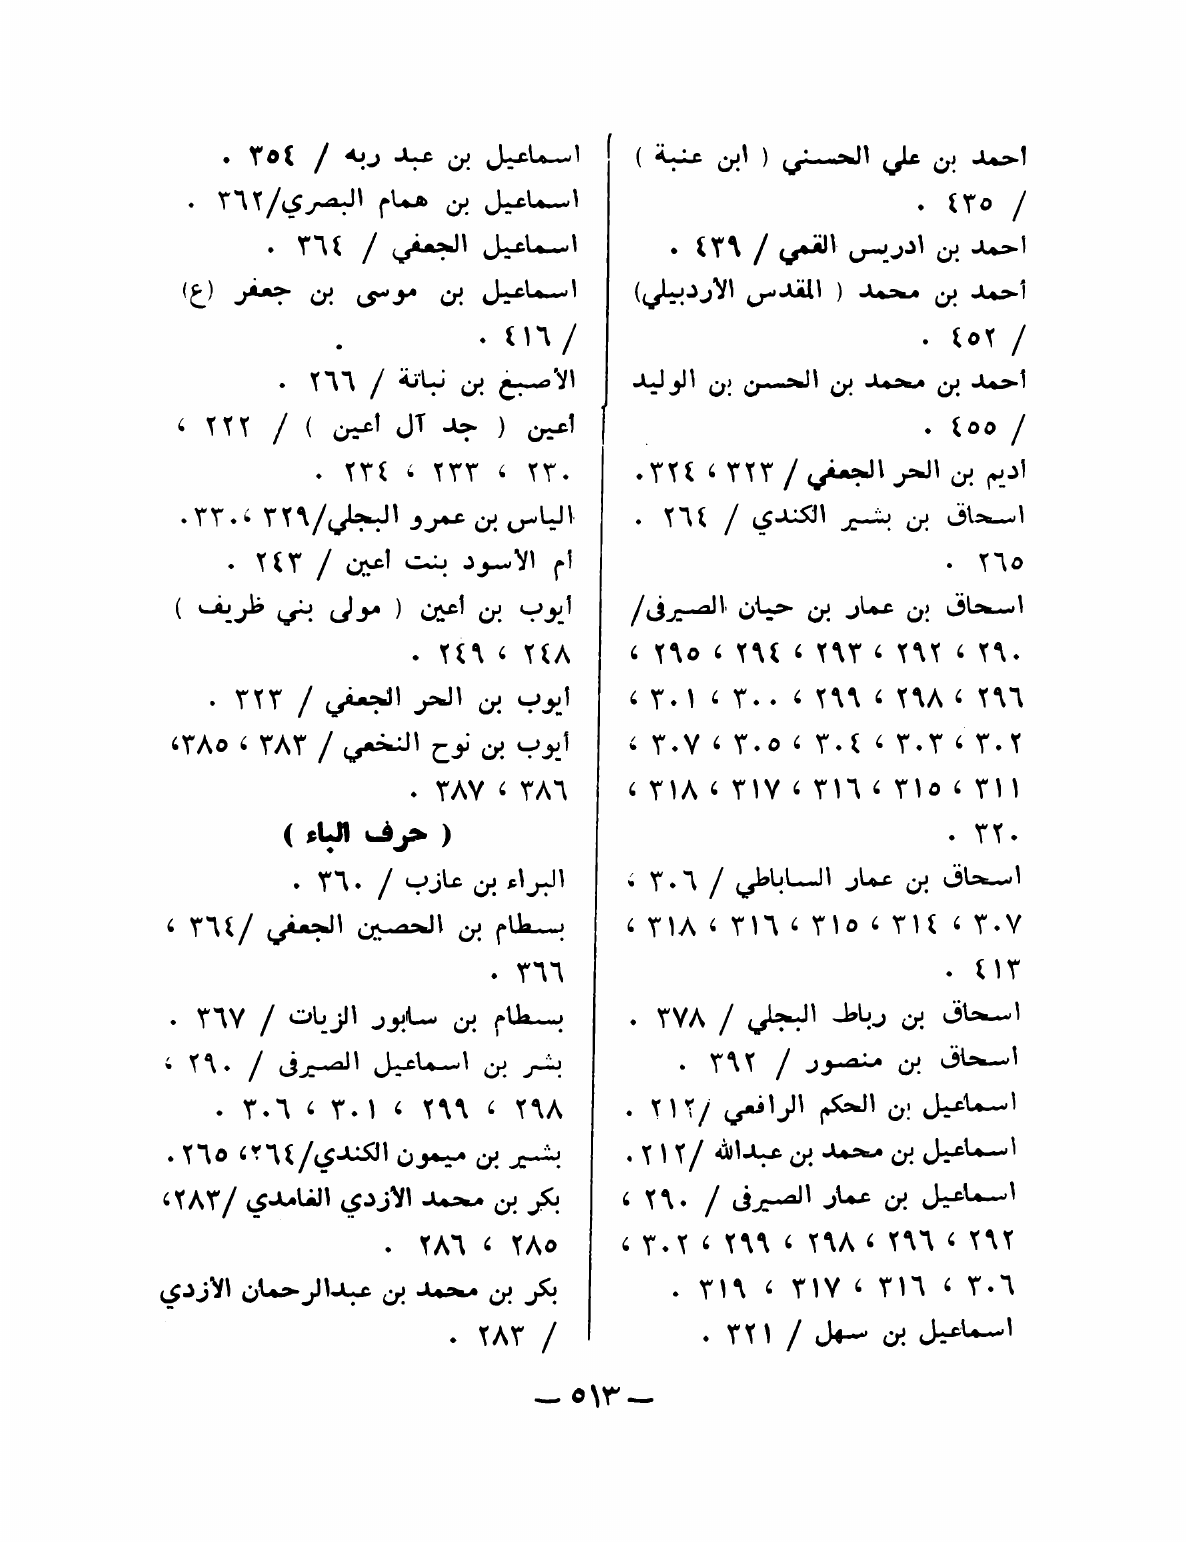 احمد بن علي الحسني ( ابن عنبة )
/ ٤٣٥ .
احمد بن ادريس القمي / ٤٣٩ .
أحمد بن محمد ( المقدس الأردبيلي)
/ ٤٥٢ .
أحمد بن محمد بن الحسن بن الوليد
/ ٤٥٥ .
أديم بن الحر الجعفي / ٣٢٣ ، ٣٢٤.
اسحاق بن بشير الكندي / ٢٦٤ .
٢٦٥ .
اسحاق بن عمار بن حيان الصيرفى/
٢٩٠ ، ٢٩٢ ، ٢٩٣ ، ٢٩٤ ، ٢٩٥ ،
٢٩٦ ، ٢٩٨ ، ٢٩٩ ، ٣٠٠ ، ٣٠١ ،
٣٠٢ ، ٣٠٣ ، ٣٠٤ ، ٣٠٥ ، ٣٠٧ ،
٣١١ ، ٣١٥ ، ٣١٦ ، ٣١٧ ، ٣١٨ ،
٣٢٠ .
اسحاق بن عمار الساباطي / ٣٠٦ ،
٣٠٧ ، ٣١٤ ، ٣١٥ ، ٣١٦ ، ٣١٨ ،
٤١٣ .
اسحاق بن رباط البجلي / ٣٧٨ .
اسحاق بن منصور / ٣٩٢ .
اسماعيل بن الحكم الرافعي /٢١٢ .
اسماعيل بن محمد بن عبدالله /٢١٢.
اسماعيل بن عمار الصيرفى / ٢٩٠ ،
٢٩٢ ، ٢٩٦ ، ٢٩٨ ، ٢٩٩ ، ٣٠٢ ،
٣٠٦ ، ٣١٦ ، ٣١٧ ، ٣١٩ .
اسماعيل بن سهل / ٣٢١ .
اسماعيل بن عبد ربه / ٣٥٤ .
اسماعيل بن همام البصري/٣٦٢ .
اسماعيل الجعفي / ٣٦٤ .
اسماعيل بن موسى بن جعفر (ع)
/ ٤١٦ .
الأصبغ بن نباتة / ٢٦٦ .
أعين ( جد آل أعين ) / ٢٢٢ ،
٢٣٠ ، ٢٣٣ ، ٢٣٤ .
الياس بن عمرو البجلي/٣٢٩ ،٣٣٠.
أم الأسود بنت أعين / ٢٤٣ .
أيوب بن أعين ( مولى بني ظريف )
٢٤٨ ، ٢٤٩ .
أيوب بن الحر الجعفي / ٣٢٣ .
أيوب بن نوح النخعي / ٣٨٣ ، ٣٨٥،
٣٨٦ ، ٣٨٧ .
( حرف الباء )
البراء بن عازب / ٣٦٠ .
بسطام بن الحصين الجعفي /٣٦٤ ،
٣٦٦ .
بسطام بن سابور الزيات / ٣٦٧ .
بشر بن اسماعيل الصيرفى / ٢٩٠ ،
٢٩٨ ، ٢٩٩ ، ٣٠١ ، ٣٠٦ .
بشير بن ميمون الكندي/٢٦٤، ٢٦٥.
بكر بن محمد الأزدي الغامدي /٢٨٣،
٢٨٥ ، ٢٨٦ .
بكر بن محمد بن عبدالرحمان الأزدي
/ ٢٨٣ .
— ٥١٣ —